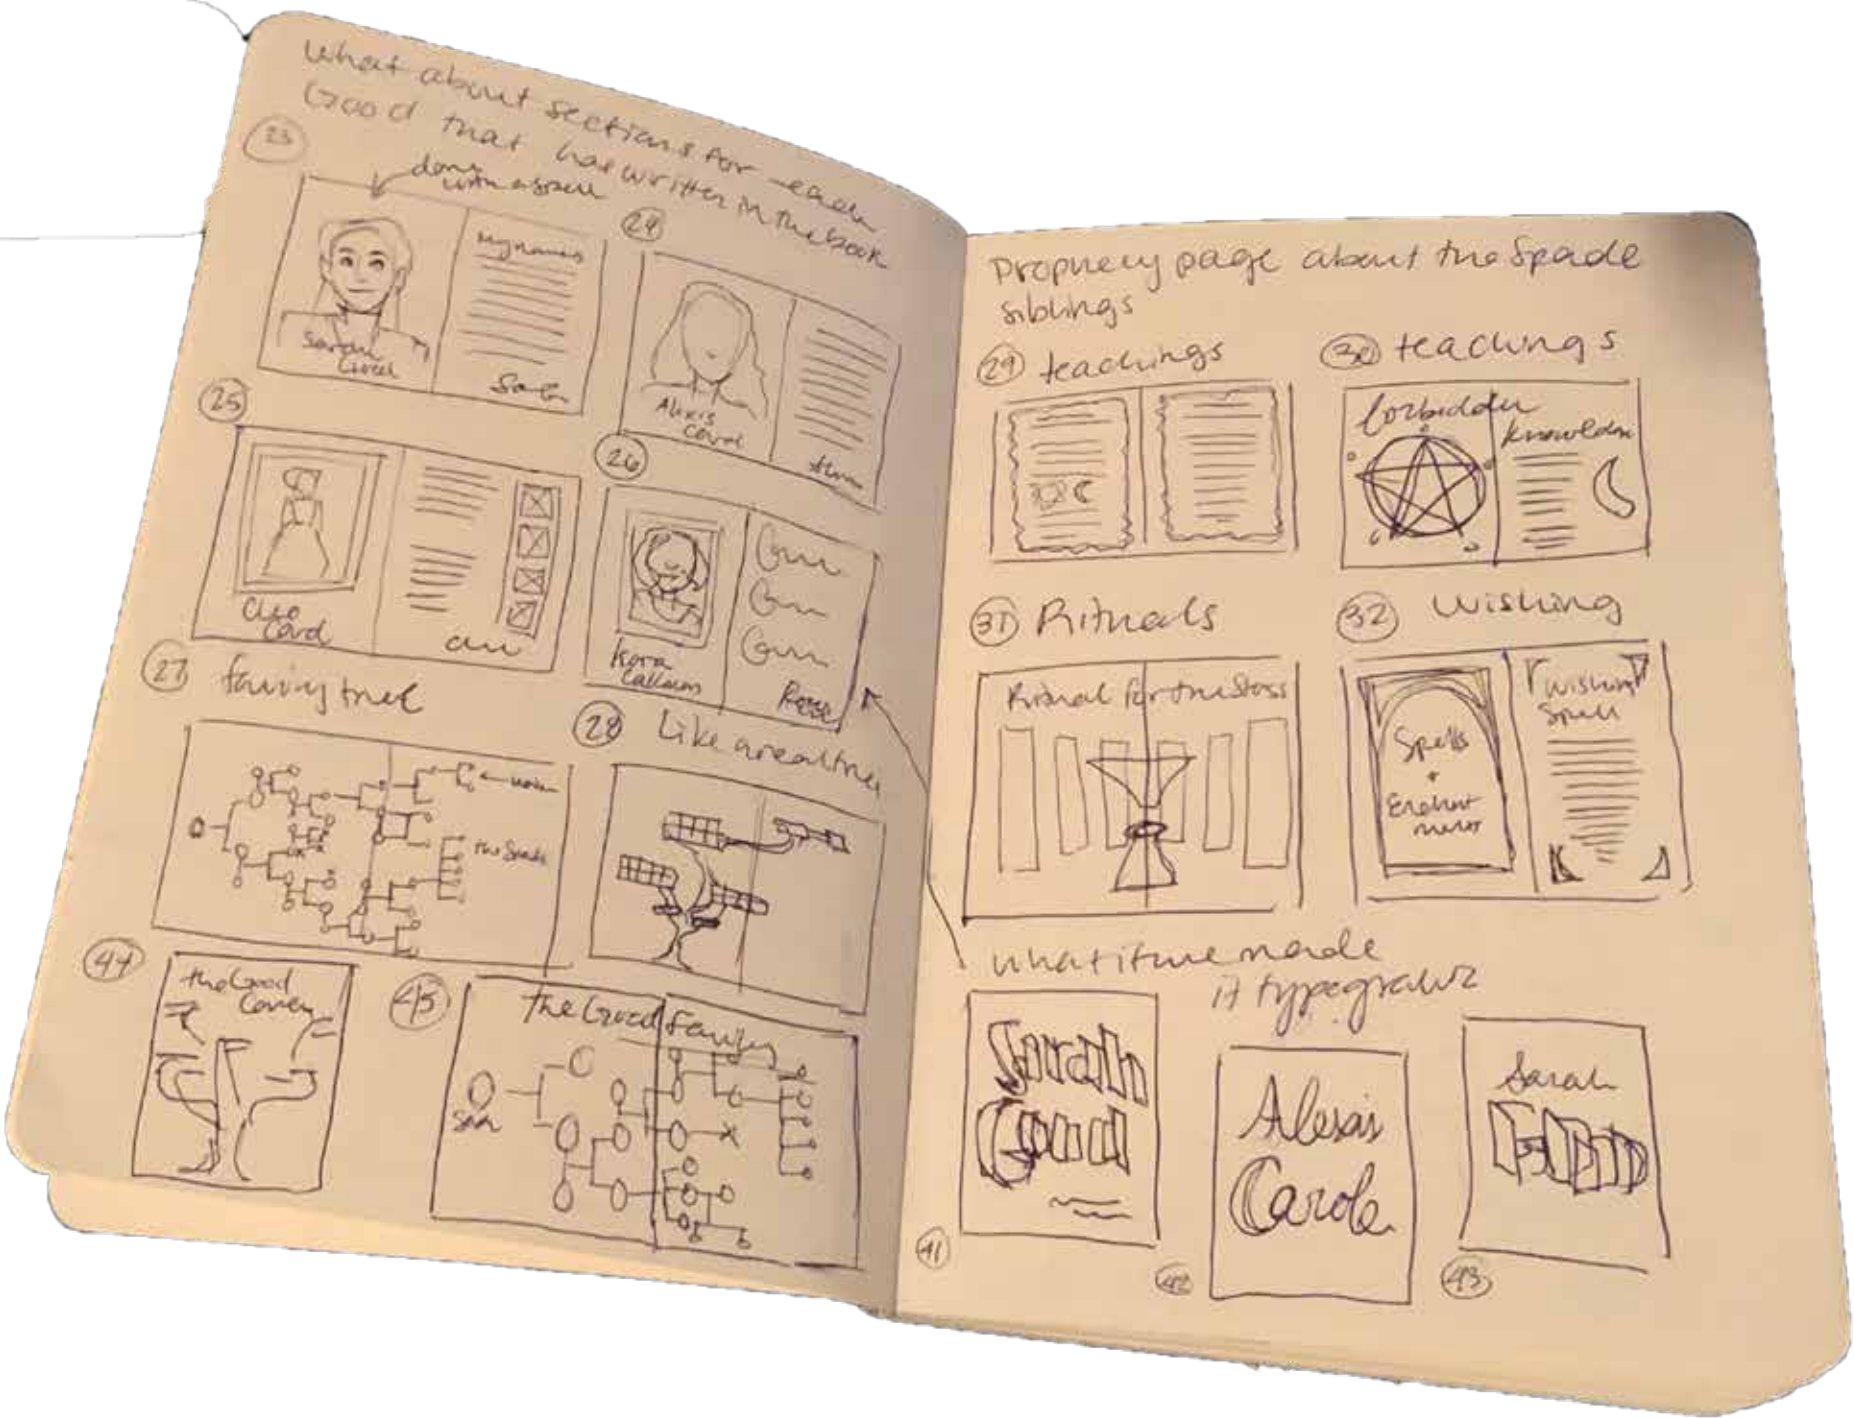 What about sections for each
Good that has written in the book
23
done
with a spell
My name is
Sarah
24
Alexis
25
Cleo
Card
26
Kora
27 family tree
28 Like a real tree
the Spade
44
the Good
Coven
45
the Good Family
Prophecy page about the Spade
siblings
29 teachings
30 teachings
forbidden
31 Rituals
Ritual for the
32 Wishing
Spells
+
Wishing
Spell
What if we made
it typographic
Sarah
Good
41
Alexis
Carole
42
Sarah
Good
43